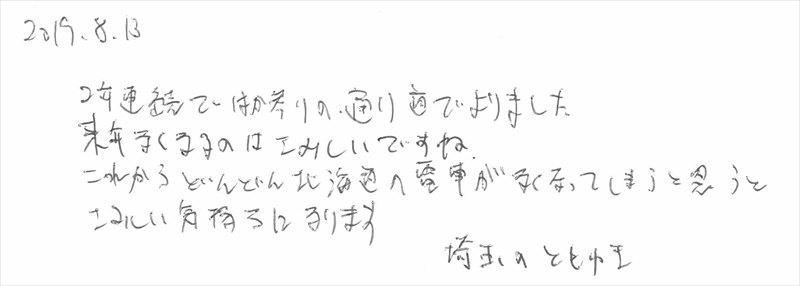 2019.8.13
2年連続で はか参りの 通り道でよりました
来年なくなるのは さみしいですね
これから どんどん 北海道の電車が なくなってしまうと思うと
さみしい気持ちに なります
埼玉の ともゆき